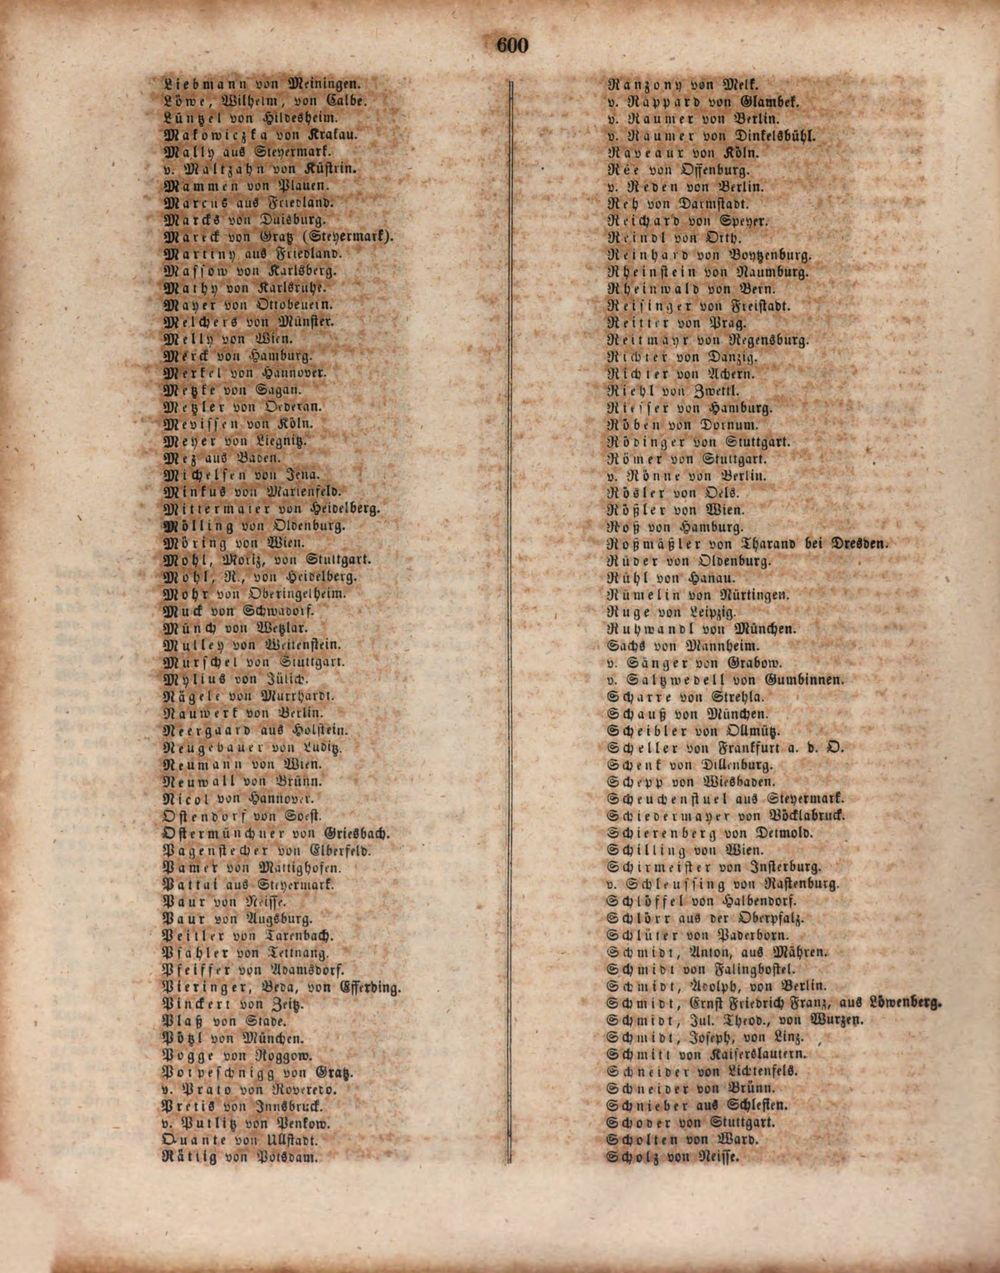 600
Liebmann von Meiningen.
Löwe, Wilhelm, von Calbe.
Lüntzel von Hildesheim.
Makowiczka von Krakau.
Mally aus Steyermark.
v. Maltzahn von Küstrin.
Mammen von Plauen.
Marcus aus Friedland.
Marcks von Duisburg.
Mareck von Gratz (Steyermark).
Martiny aus Friedland.
Massow von Karlsberg.
Mathy von Karlsruhe.
Mayer von Ottobeuern.
Melchers von Münster.
Melly von Wien.
Merck von Hamburg.
Merkel von Hannover.
Metzke von Sagan.
Metzler von Oederan.
Mevissen von Köln.
Meyer von Liegnitz.
Mez aus Baden.
Michelsen von Jena.
Minkus von Marienfeld.
Mittermaier von Heidelberg.
Mölling von Oldenburg.
Möring von Wien.
Mohl, Moriz, von Stuttgart.
Mohl, R., von Heidelberg.
Mohr von Oberingelheim.
Muck von Schwadorf.
Münch von Wetzlar.
Mulley von Weitenstein.
Murschel von Stuttgart.
Mylius von Jülich.
Nägele von Murrhardt.
Nauwerk von Berlin.
Neergaard aus Holstein.
Neugebauer von Luditz.
Neumann von Wien.
Neuwall von Brünn.
Nicol von Hannover.
Ostendorf von Soest.
Ostermünchner von Griesbach.
Pagenstecher von Elberfeld.
Pamer von Mattighofen.
Pattai aus Steyermark.
Paur von Neisse.
Paur von Augsburg.
Peitler von Tarenbach.
Pfahler von Tettnang.
Pfeiffer von Adamsdorf.
Pieringer, Beda, von Efferding.
Pinckert von Zeitz.
Plaß von Stade.
Pötzl von München.
Pogge von Roggow.
Potpeschnigg von Gratz.
v. Prato von Roveredo.
Pretis von Innsbruck.
v. Putlitz von Penkow.
Quante von Ullstadt.
Rättig von Potsdam.
Ranzony von Melk.
v. Rappard von Glambek.
v. Raumer von Berlin.
v. Raumer von Dinkelsbühl.
Raveaux von Köln.
Rée von Offenburg.
v. Reden von Berlin.
Reh von Darmstadt.
Reichard von Speyer.
Reindl von Orth.
Reinhard von Boytzenburg.
Rheinstein von Naumburg.
Rheinwald von Bern.
Reisinger von Freistadt.
Reitter von Prag.
Reitmayr von Regensburg.
Richter von Danzig.
Richter von Achern.
Riehl von Zwettl.
Riesser von Hamburg.
Röben von Dornum.
Rödinger von Stuttgart.
Römer von Stuttgart.
v. Rönne von Berlin.
Rösler von Oels.
Rößler von Wien.
Roß von Hamburg.
Roßmäßler von Tharand bei Dresden.
Rüder von Oldenburg.
Rühl von Hanau.
Rümelin von Nürtingen.
Ruge von Leipzig.
Ruhwandl von München.
Sachs von Mannheim.
v. Sänger von Grabow.
v. Saltzwedell von Gumbinnen.
Scharre von Strehla.
Schauß von München.
Scheibler von Ollmütz.
Scheller von Frankfurt a. d. O.
Schenk von Dillenburg.
Schepp von Wiesbaden.
Scheuchenstuel aus Steyermark.
Schiedermayer von Vöcklabruck.
Schierenberg von Detmold.
Schilling von Wien.
Schirmeister von Insterburg.
v. Schleussing von Rastenburg.
Schlöffel von Halbendorf.
Schlörr aus der Oberpfalz.
Schlüter von Paderborn.
Schmidt, Anton, aus Mähren.
Schmidt von Falingbostel.
Schmidt, Adolph, von Berlin.
Schmidt, Ernst Friedrich Franz, aus Löwenberg.
Schmidt, Jul. Theod., von Wurzen.
Schmidt, Joseph, von Linz.
Schmitt von Kaiserslautern.
Schneider von Lichtenfels.
Schneider von Brünn.
Schnieber aus Schlesien.
Schoder von Stuttgart.
Scholten von Ward.
Scholz von Neisse.